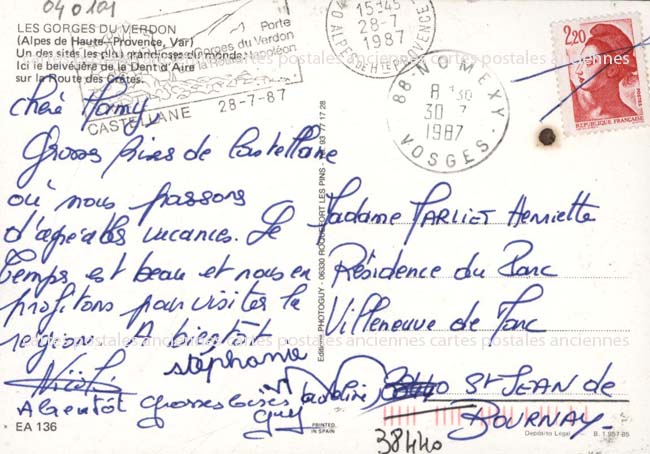 04 0101
LES GORGES DU VERDON
(Alpes de Haute-Provence, Var)
Un des sites les plus grandioses du monde.
Ici le belvédère de la Dent d'Aire
sur la Route des Crêtes.
Porte
Gorges du Verdon
la route Napoléon
CASTELLANE 28-7-87
15H45
28-7
1987
ALPES DE HTE PROVENCE
88-NOMEXY
A 30
30 7
1987
VOSGES
2,20
REPUBLIQUE FRANCAISE
POSTES
chère Mamy
Grosses bises de Castellane
où nous passons
d'agréables vacances. Le
temps est beau et nous en
profitons pour visiter la
région. A bientôt
stéphanie
A bientôt grosses bises
guy
Madame PARLIET Henriette
Résidence du Parc
Villeneuve de Marc
St JEAN de
BOURNAY
38440
EA 136
Edition PHOTOGUY - 06330 ROQUEFORT LES PINS - 93 77 17 28
PRINTED
IN SPAIN
Depósito Legal B. 1.957-85
cartes postales anciennes cartes postales anciennes cartes postales anciennes